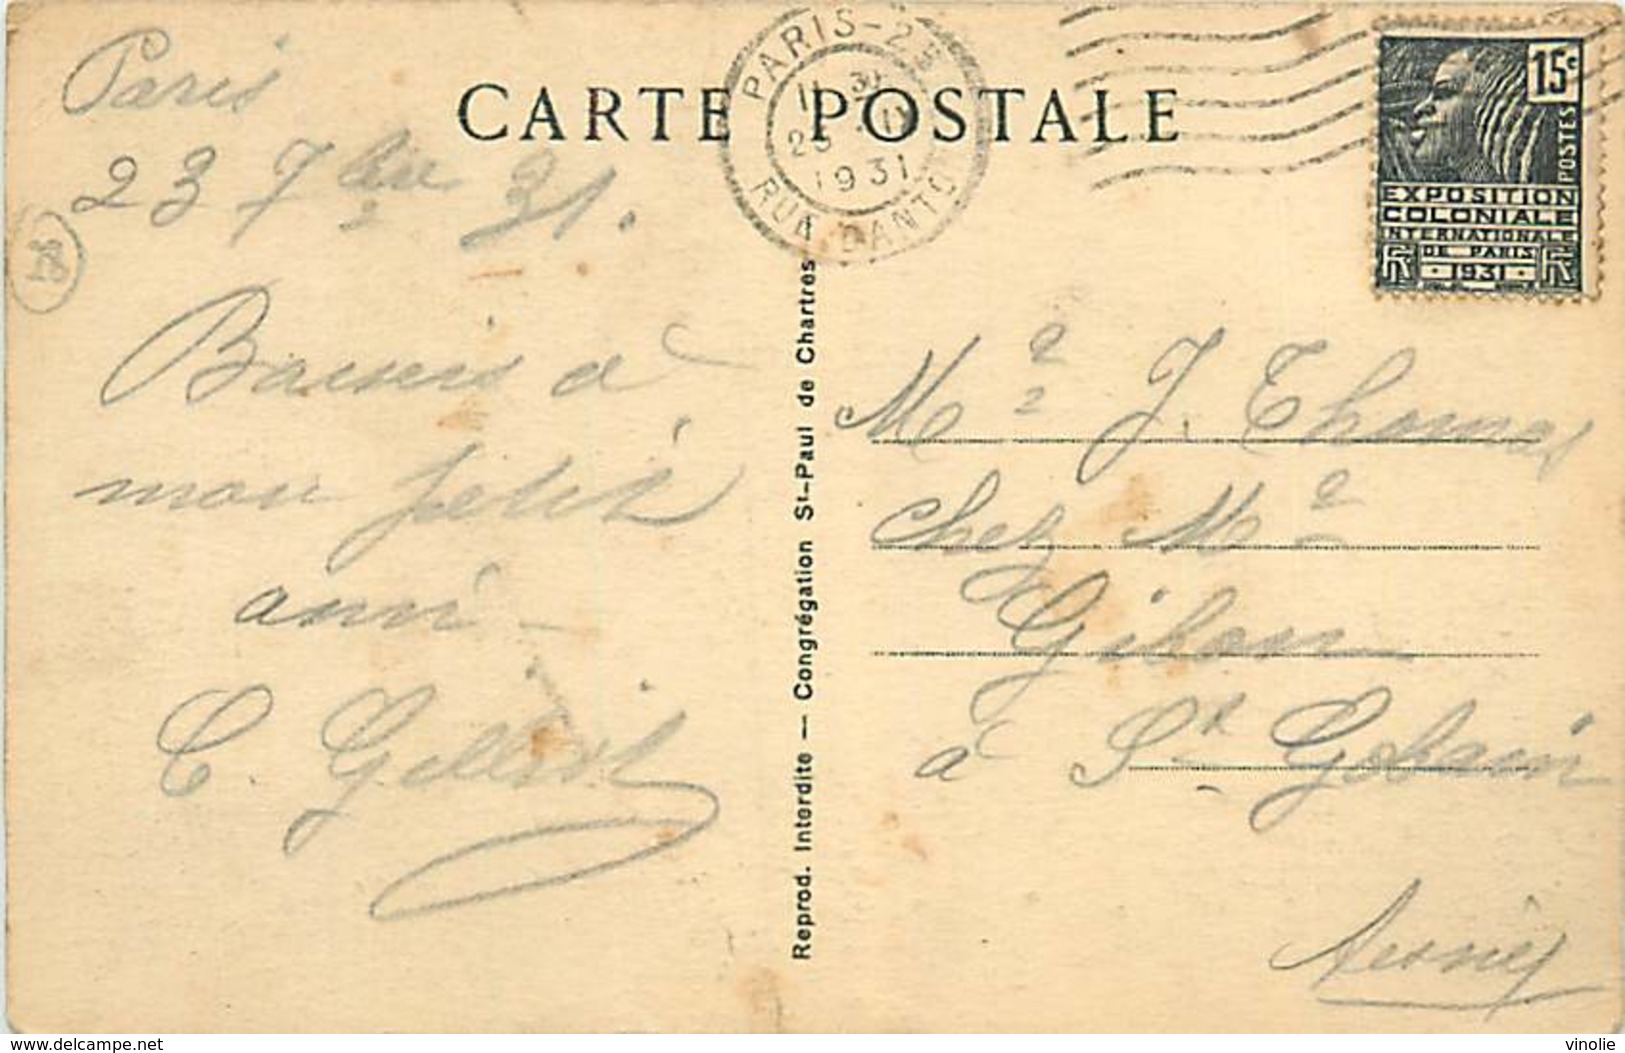 CARTE POSTALE
PARIS-25
11 30
23 · IX
1931
RUE DANTON
15c
POSTES
EXPOSITION
COLONIALE
INTERNATIONALE
DE PARIS
· 1931 ·
RF RF
Paris
23 7bre 31.
Baisers à
mon petit
ami -
C.
Reprod. Interdite — Congrégation St-Paul de Chartres
Me J. Thomas
chez Me
Gibon
à St Gobain
Aisne
delcampe.net
vinolie